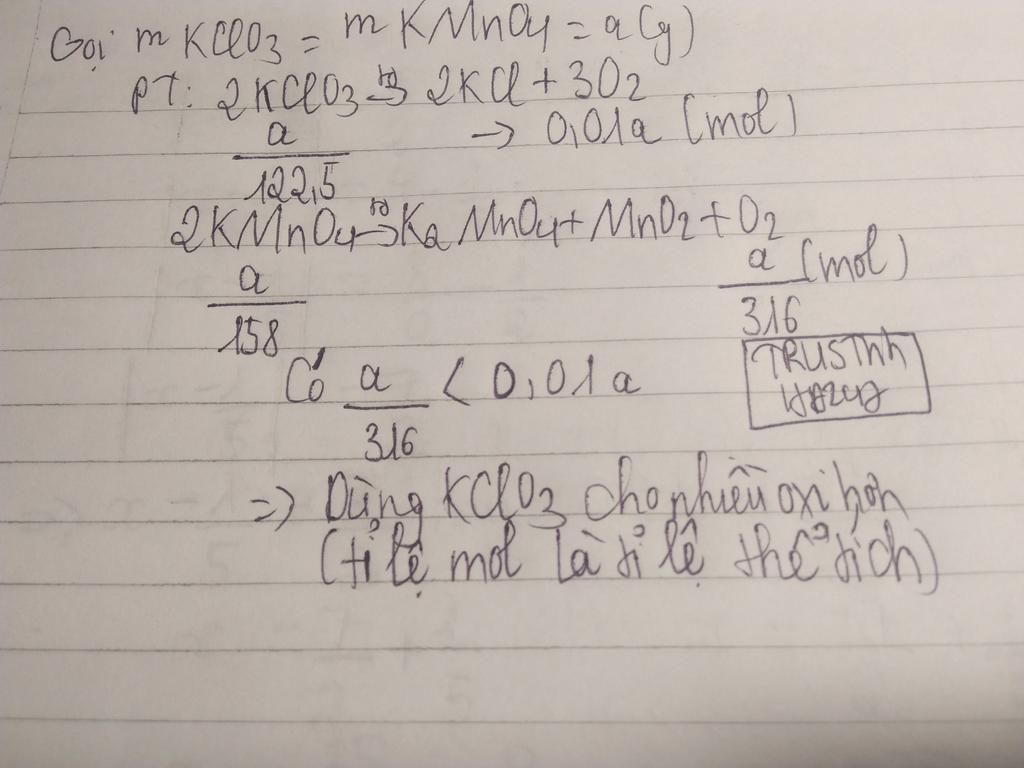 Gọi mKClO3 = mKMnO4 = a(g)
PT: 2KClO3 to→ 2KCl + 3O2
a/122,5 → 0,01a (mol)
2KMnO4 to→ K2MnO4 + MnO2 + O2
a/158 a/316 (mol)
Có a/316 < 0,01a
=> Dùng KClO3 cho nhiều oxi hơn
(tỉ lệ mol là tỉ lệ thể tích)